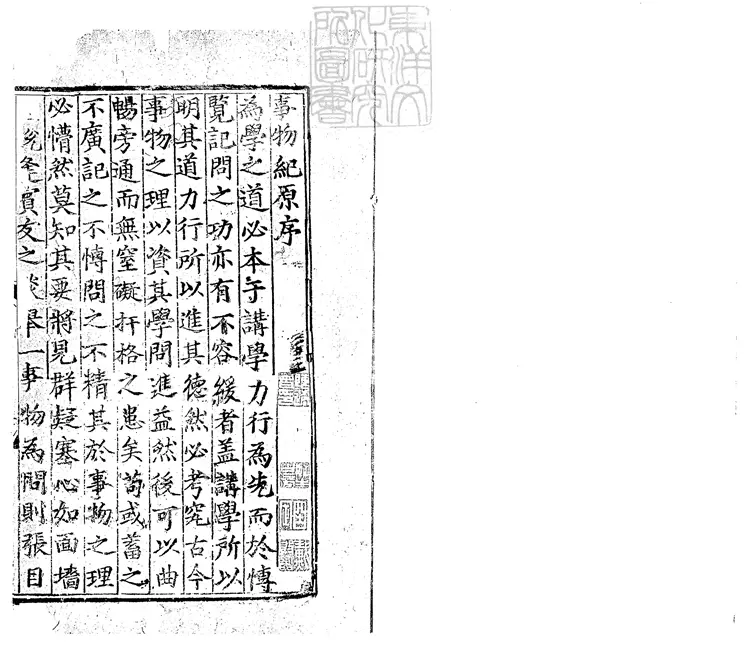 東洋文化研究所圖書
事物紀原序
為學之道必本于講學力行為先而於愽
覽記問之功亦有不容緩者盖講學所以
明其道力行所以進其德然必考究古今
事物之理以資其學問進益然後可以曲
暢旁通而無窒礙扞格之患矣茍或蓄之
不廣記之不愽問之不精其於事物之理
必懵然莫知其要將見群疑塞心如面墻
賓友之談舉一事物為問則張目